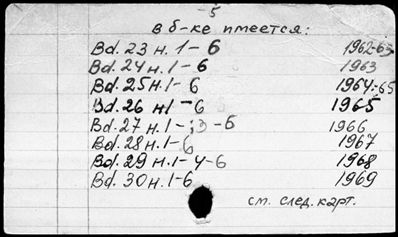 -5
в б-ке имеется:
Bd. 23 н. 1-6 1962-63
Bd. 24 н. 1-6 1963
Bd. 25 н. 1-6 1964-65
Bd. 26 н. 1-6 1965
Bd. 27 н. 1-;3-6 1966
Bd. 28 н. 1-6 1967
Bd. 29 н. 1-4-6 1968
Bd. 30 н. 1-6 1969
см. след. карт.